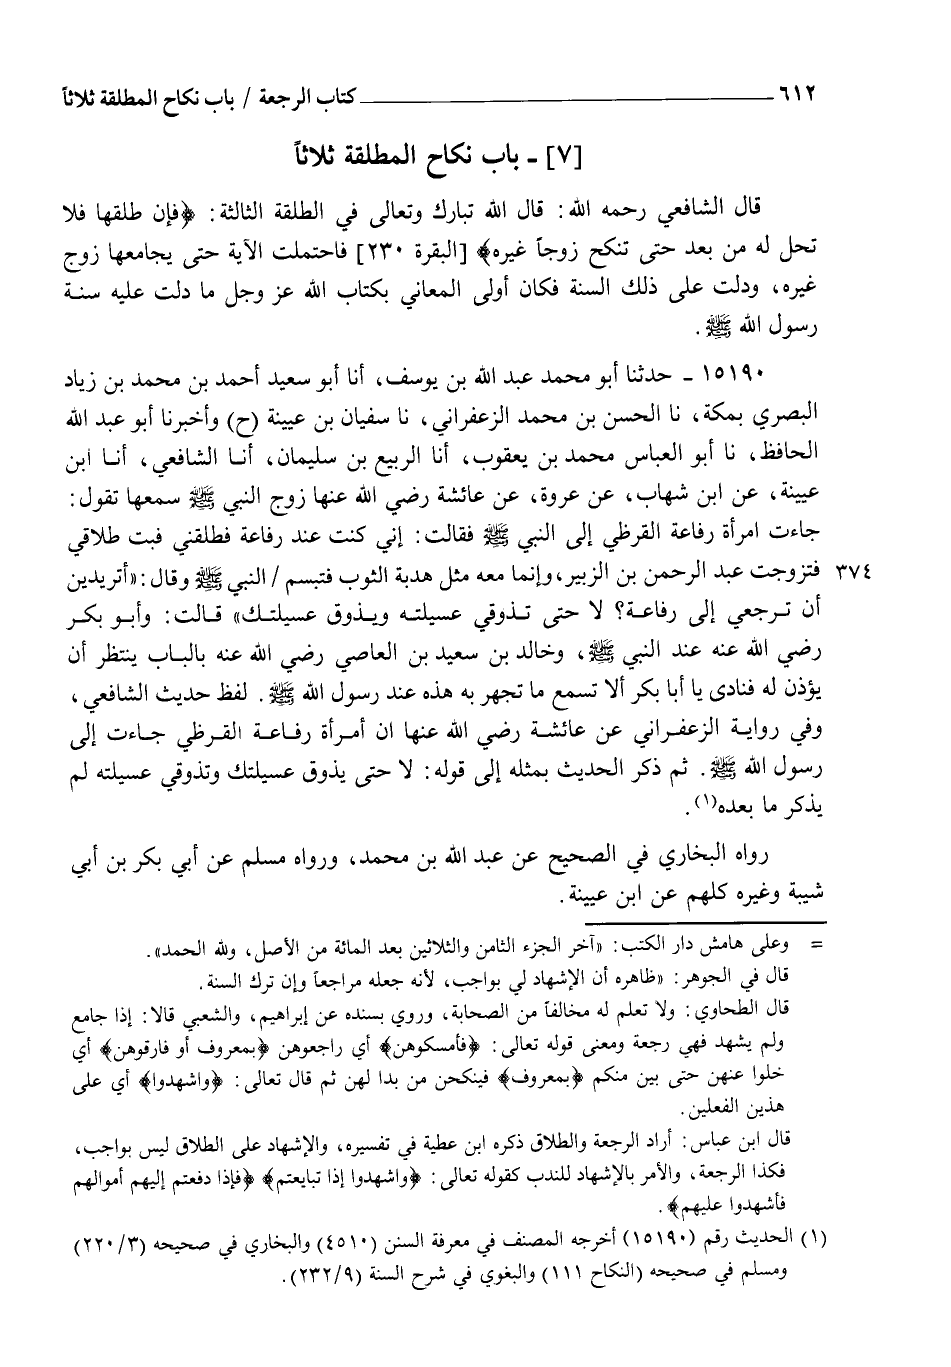 ٦١٢ كتاب الرجعة / باب نكاح المطلقة ثلاثاً
[٧] ـ باب نكاح المطلقة ثلاثاً
قال الشافعي رحمه الله: قال الله تبارك وتعالى في الطلقة الثالثة: ﴿فإن طلقها فلا
تحل له من بعد حتى تنكح زوجاً غيره﴾ [البقرة ٢٣٠] فاحتملت الآية حتى يجامعها زوج
غيره، ودلت على ذلك السنة فكان أولى المعاني بكتاب الله عز وجل ما دلت عليه سنة
رسول الله ﷺ.
١٥١٩٠ ـ حدثنا أبو محمد عبد الله بن يوسف، أنا أبو سعيد أحمد بن محمد بن زياد
البصري بمكة، نا الحسن بن محمد الزعفراني، نا سفيان بن عيينة (ح) وأخبرنا أبو عبد الله
الحافظ، نا أبو العباس محمد بن يعقوب، أنا الربيع بن سليمان، أنا الشافعي، أنا ابن
عيينة، عن ابن شهاب، عن عروة، عن عائشة رضي الله عنها زوج النبي ﷺ سمعها تقول:
جاءت امرأة رفاعة القرظي إلى النبي ﷺ فقالت: إني كنت عند رفاعة فطلقني فبت طلاقي
٣٧٤ فتزوجت عبد الرحمن بن الزبير، وإنما معه مثل هدبة الثوب فتبسم / النبي ﷺ وقال: «أتريدين
أن ترجعي إلى رفاعة؟ لا حتى تذوقي عسيلته ويذوق عسيلتك» قالت: وأبو بكر
رضي الله عنه عند النبي ﷺ، وخالد بن سعيد بن العاصي رضي الله عنه بالباب ينتظر أن
يؤذن له فنادى يا أبا بكر ألا تسمع ما تجهر به هذه عند رسول الله ﷺ. لفظ حديث الشافعي،
وفي رواية الزعفراني عن عائشة رضي الله عنها ان أمرأة رفاعة القرظي جاءت إلى
رسول الله ﷺ. ثم ذكر الحديث بمثله إلى قوله: لا حتى يذوق عسيلتك وتذوقي عسيلته لم
يذكر ما بعده(١).
رواه البخاري في الصحيح عن عبد الله بن محمد، ورواه مسلم عن أبي بكر بن أبي
شيبة وغيره كلهم عن ابن عيينة.
= وعلى هامش دار الكتب: «آخر الجزء الثامن والثلاثين بعد المائة من الأصل، ولله الحمد».
قال في الجوهر: «ظاهره أن الإشهاد لي بواجب، لأنه جعله مراجعاً وإن ترك السنة.
قال الطحاوي: ولا تعلم له مخالفاً من الصحابة، وروي بسنده عن إبراهيم، والشعبي قالا: إذا جامع
ولم يشهد فهي رجعة ومعنى قوله تعالى: ﴿فأمسكوهن﴾ أي راجعوهن ﴿بمعروف أو فارقوهن﴾ أي
خلوا عنهن حتى بين منكم ﴿بمعروف﴾ فينكحن من بدا لهن ثم قال تعالى: ﴿واشهدوا﴾ أي على
هذين الفعلين.
قال ابن عباس: أراد الرجعة والطلاق ذكره ابن عطية في تفسيره، والإشهاد على الطلاق ليس بواجب،
فكذا الرجعة، والأمر بالإشهاد للندب كقوله تعالى: ﴿واشهدوا إذا تبايعتم﴾ ﴿فإذا دفعتم إليهم أموالهم
فأشهدوا عليهم﴾.
(١) الحديث رقم (١٥١٩٠) أخرجه المصنف في معرفة السنن (٤٥١٠) والبخاري في صحيحه (٢٢٠/٣)
ومسلم في صحيحه (النكاح ١١١) والبغوي في شرح السنة (٢٣٢/٩).